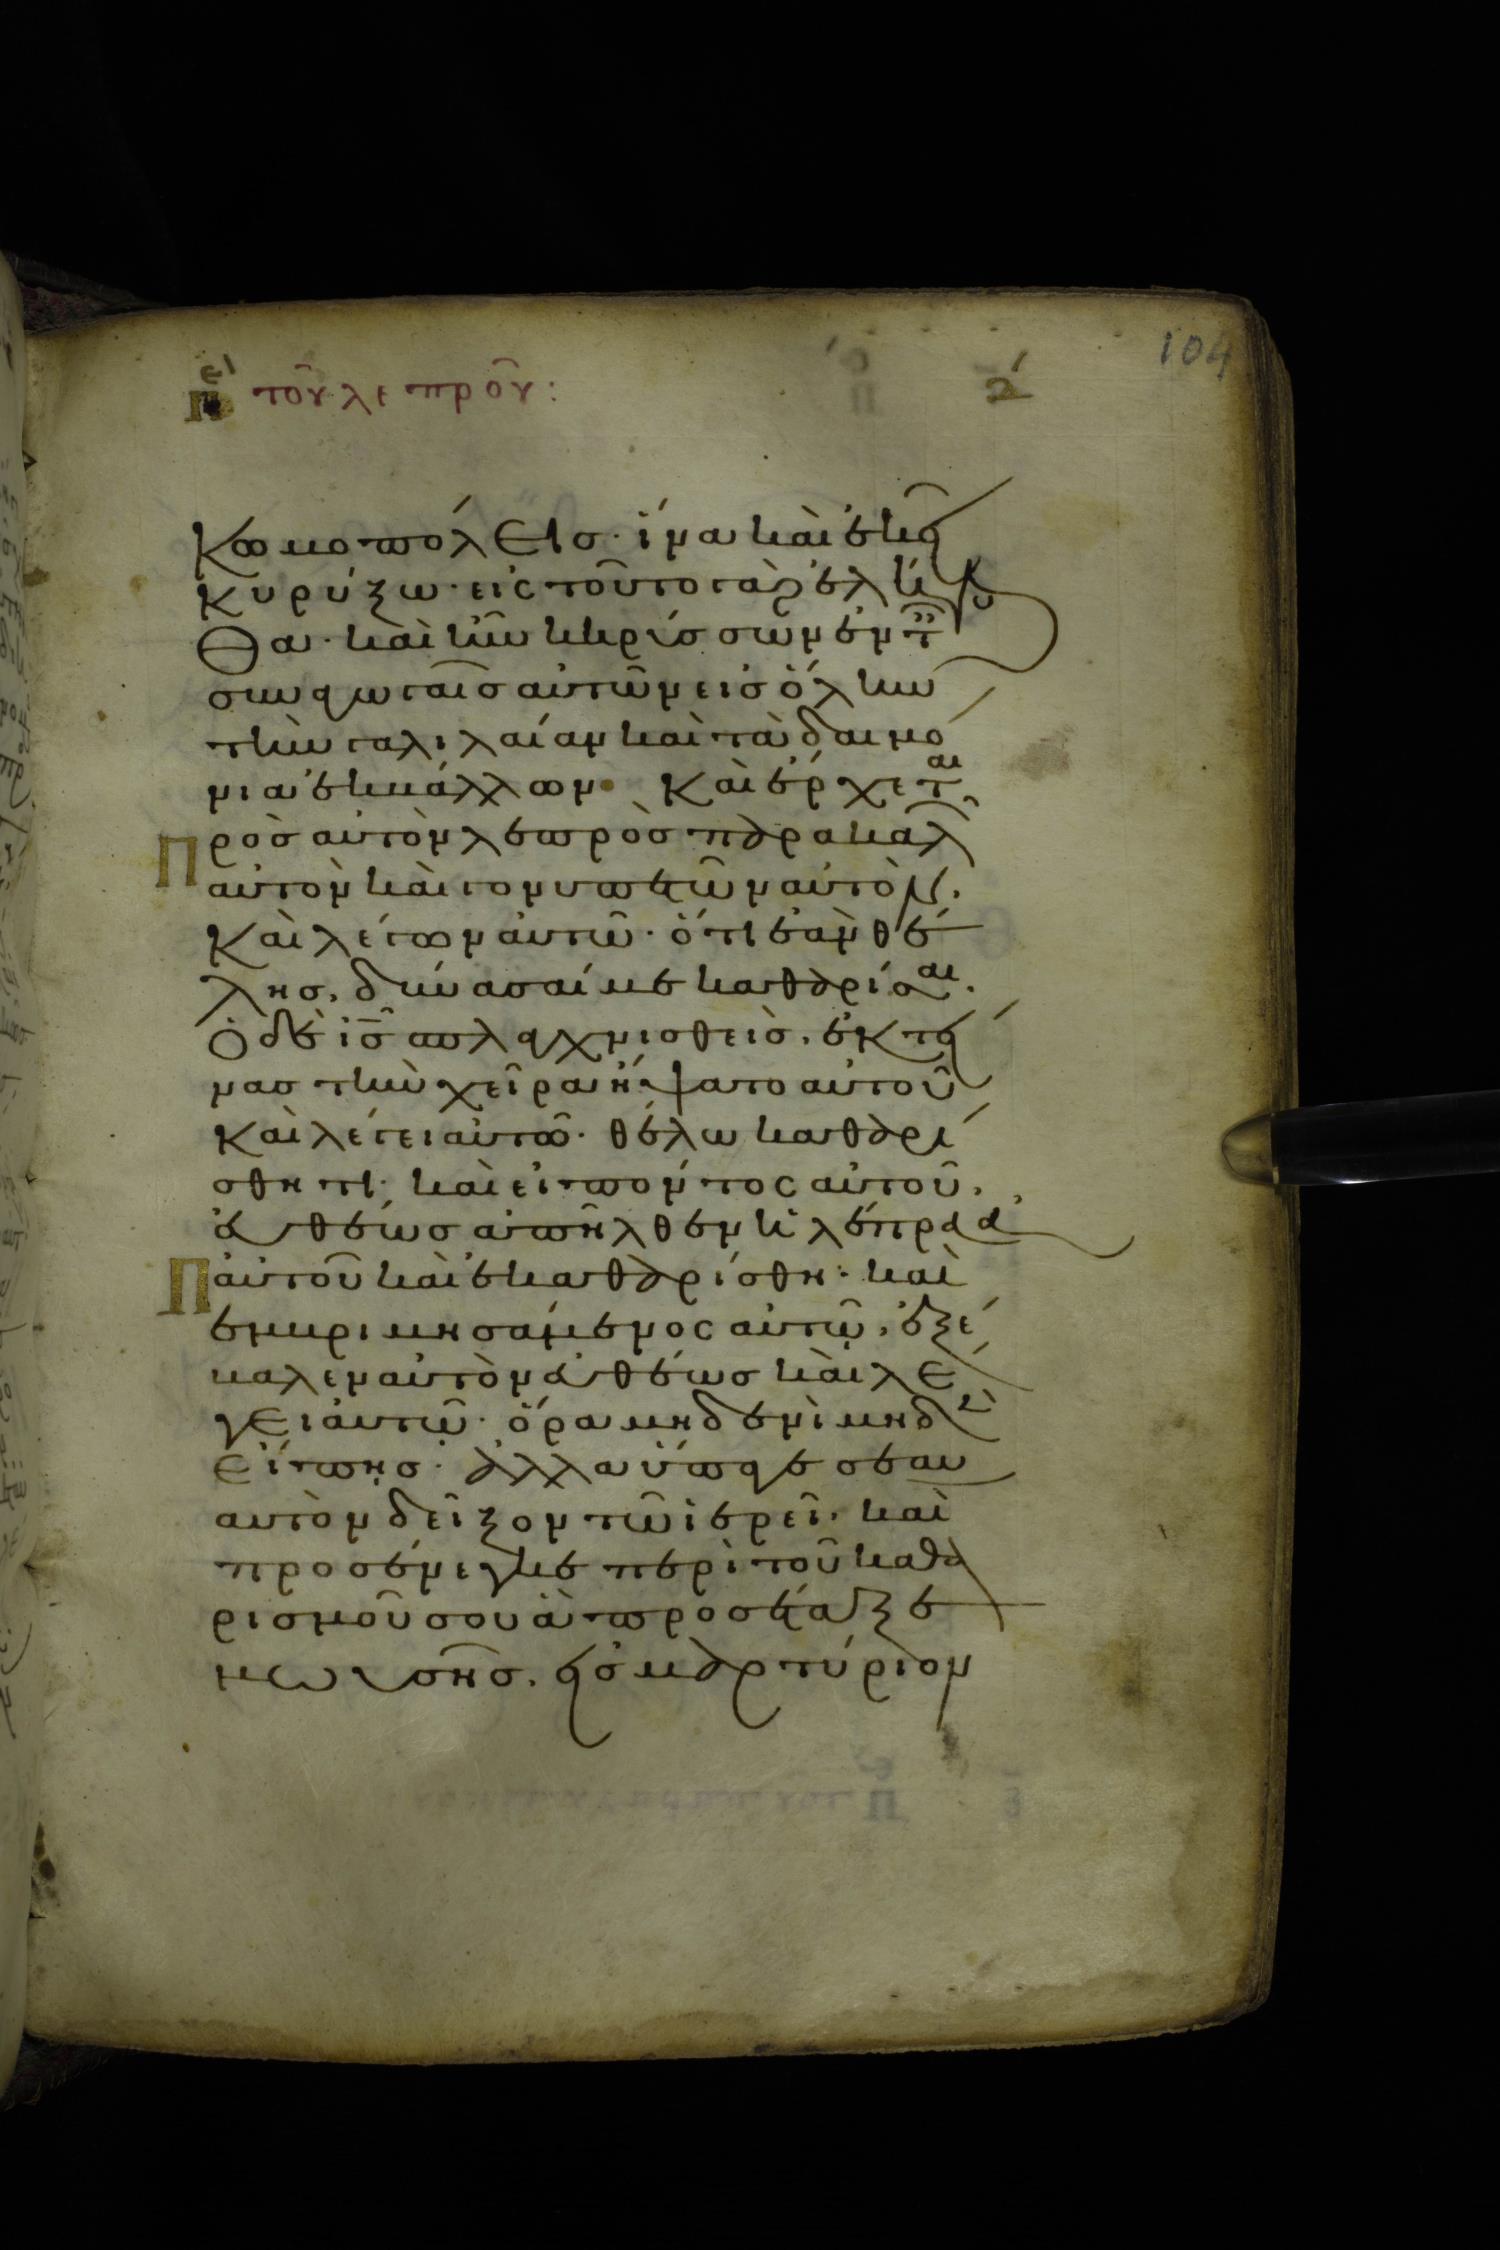 104
ε΄ τοῦ λεπροῦ:
κωμοπόλεις· ἵνα καὶ ἐκεῖ
κυρύξω· εἰς τοῦτο γὰρ ἐλήλυ
θα· καὶ ἦν κηρύσσων ἐν τ
συναγωγαῖς αὐτῶν εἰς ὅλην
τὴν γαλιλαίαν καὶ τὰ δαιμό
νια ἐκβάλλων· Καὶ ἔρχεται
Πρὸς αὐτὸν λεπρὸς παρακαλ
αὐτὸν καὶ γονυπετῶν αὐτὸν.
Καὶ λέγων αὐτῶ· ὅτι ἐὰν θέ
λης, δύνασαί με καθαρίσαι.
Ὁ δὲ ἰς σπλαγχνισθεὶς, ἐκτεί
νας τὴν χεῖρα ἥψατο αὐτοῦ
καὶ λέγει αὐτῶ· θέλω καθαρί
σθητι· καὶ εἰπόντος αὐτοῦ,
εὐθέως ἀπῆλθεν ἡ λέπρα ἀ
Π αὐτοῦ καὶ ἐκαθαρίσθη· καὶ
ἐμβριμησάμενος αὐτῶ, ἐξέ
βαλεν αὐτὸν εὐθέως καὶ λέ
γει αὐτῶ· ὅρα μηδενὶ μηδὲ
εἴπης· ἀλλὰ ὕπαγε σεαυ
αυτὸν δεῖξον τῶ ἱερεῖ· καὶ
προσένεγκε περὶ τοῦ καθα
ρισμοῦ σου ἃ προσέταξε
μωυσῆς, εἰς μαρτύριον